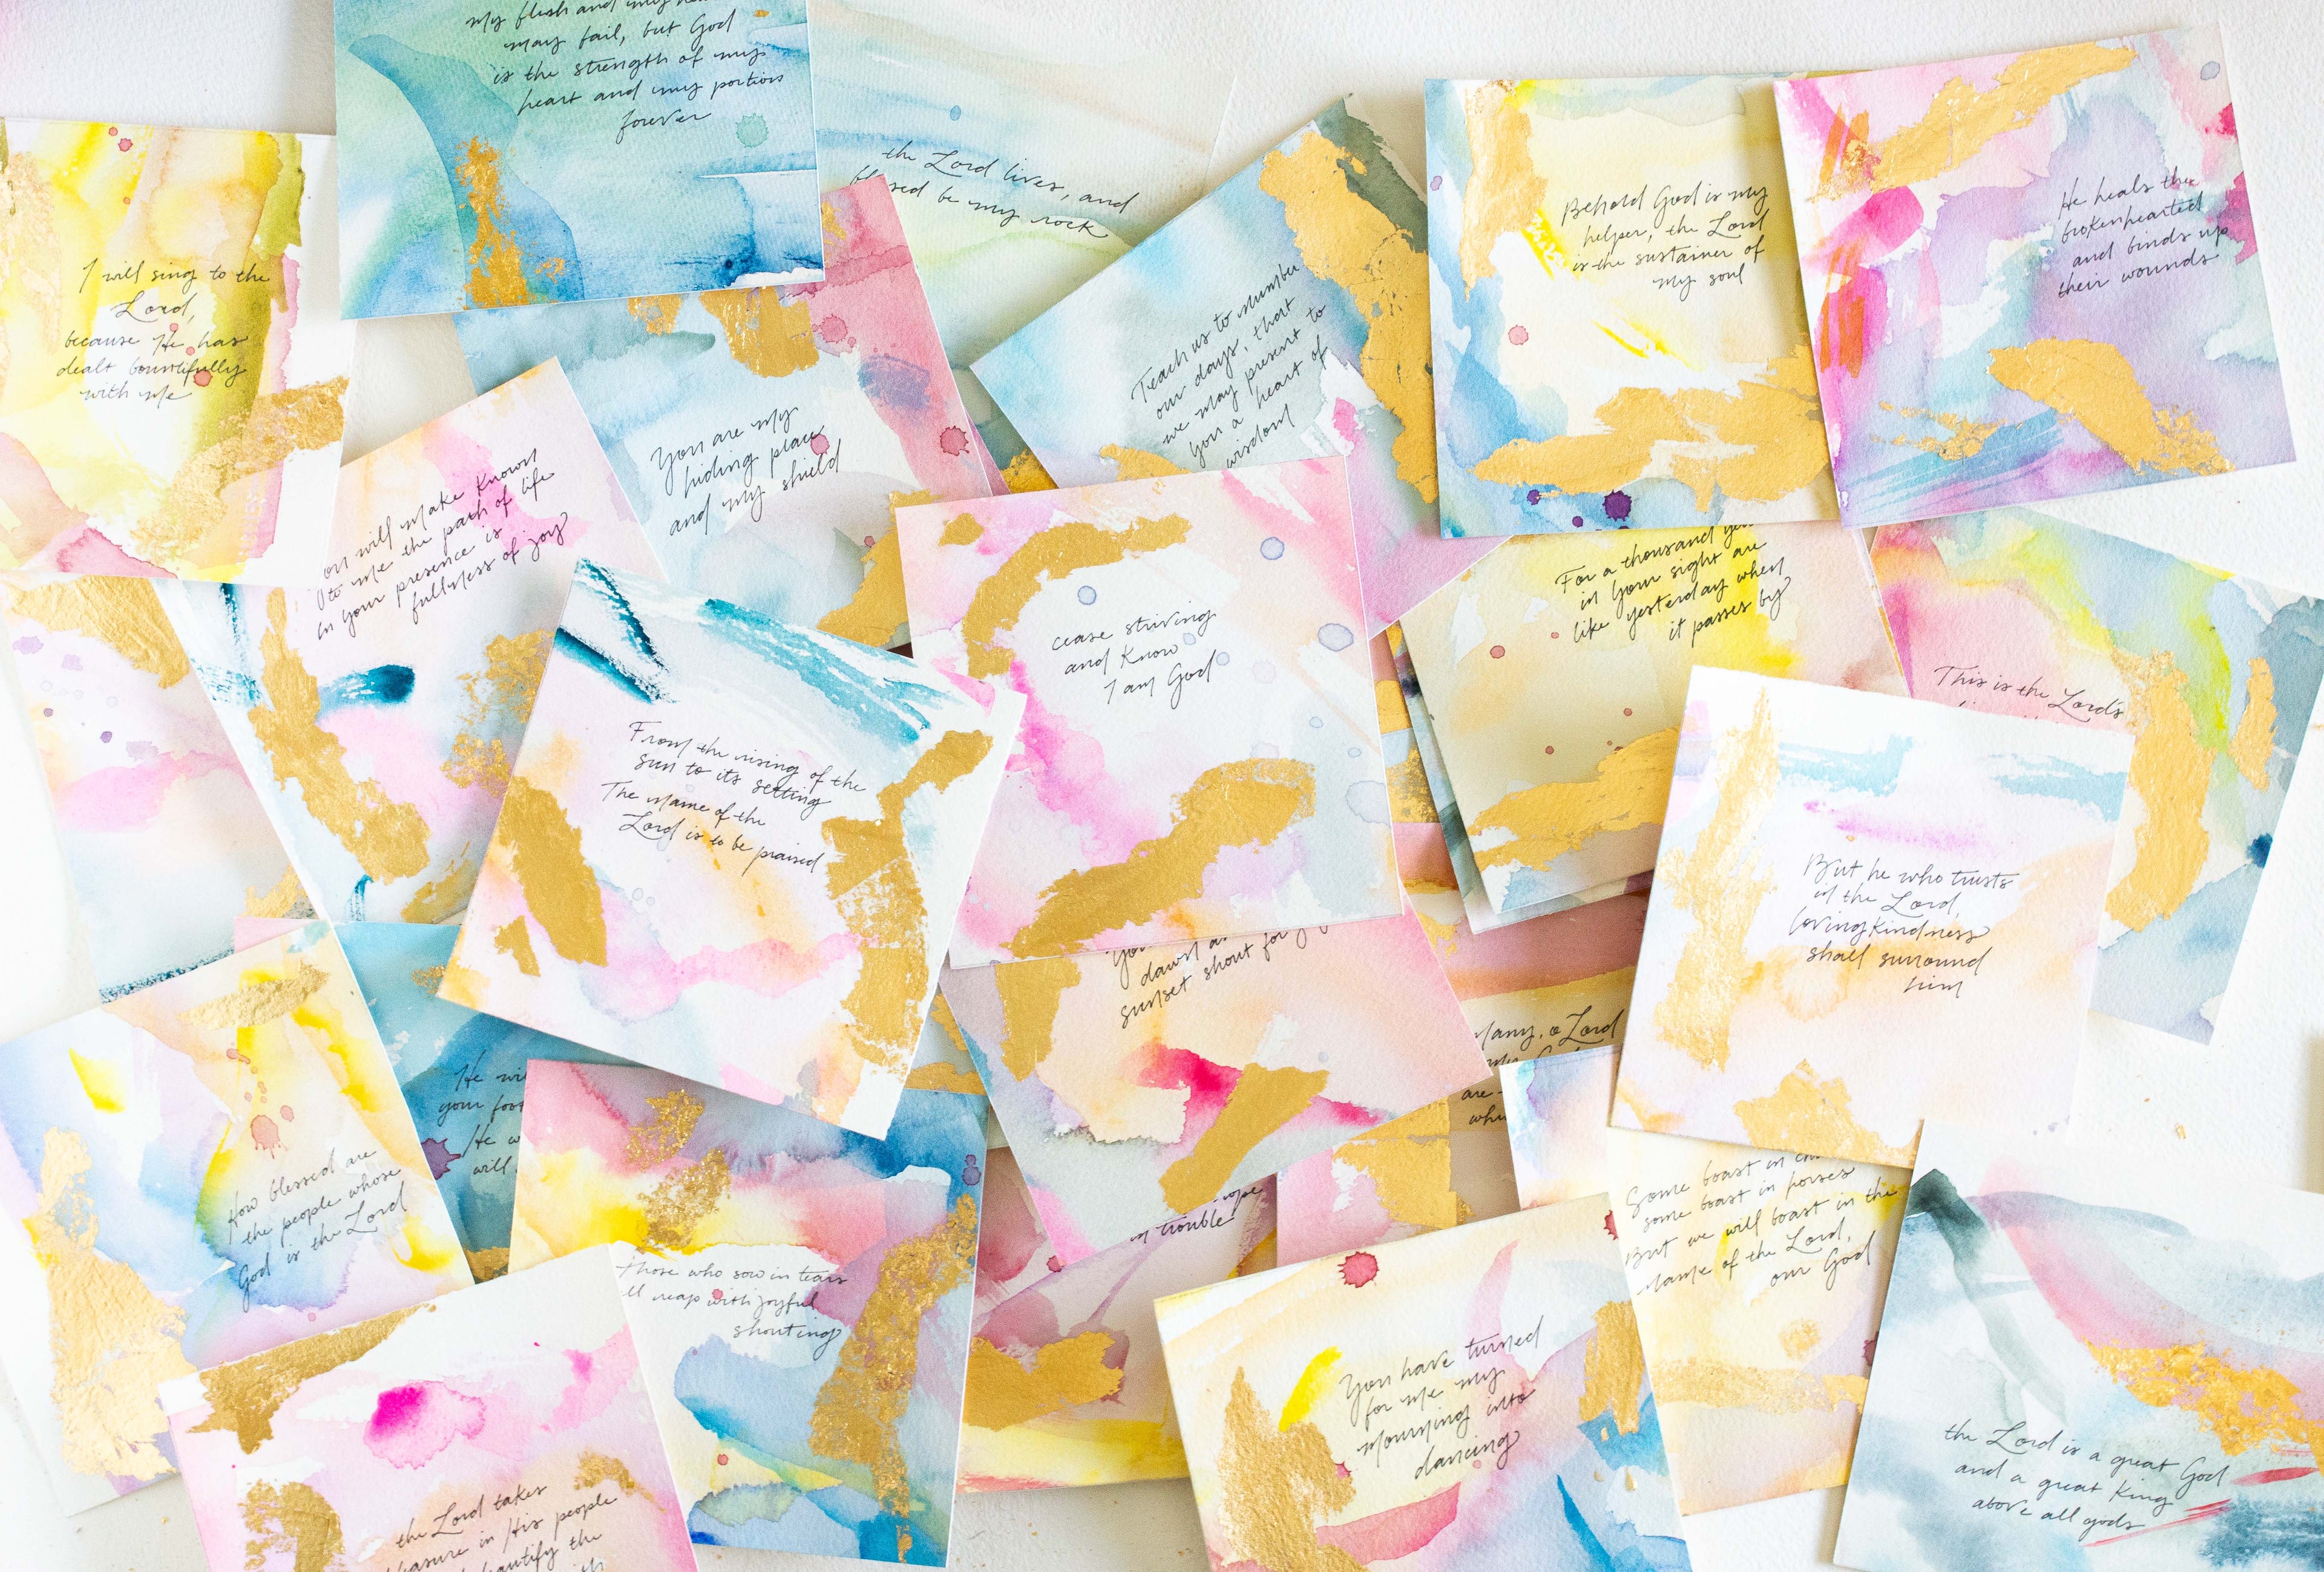 my flesh and my
may fail, but God
is the strength of my
heart and my portion
forever
the Lord lives, and
be my rock
I will sing to the
Lord,
because He has
dealt bountifully
with me
You are my
hiding place
and my shield
Teach us to number
our days, that
we may present to
you a heart of
wisdom
Behold God is my
helper, the Lord
is the sustainer of
my soul
He heals the
brokenhearted
and binds up
their wounds
will make known
to me the path of life
in your presence is
fullness of joy
cease striving
and know
I am God
For a thousand
in your sight are
like yesterday when
it passes by
This is the Lord's
From the rising of the
sun to its setting
The name of the
Lord is to be praised
But he who trusts
in the Lord,
lovingkindness
shall surround
him
dawn
sunset shout for
many, o Lord
are
He
your
He
will
How blessed are
the people whose
God is the Lord
Those who sow in tears
reap with joyful
shouting
in trouble
Some boast in
some boast in horses
But we will boast in the
name of the Lord,
our God
You have turned
for me my
mourning into
dancing
the Lord is a great God
and a great King
above all gods
the Lord takes
in His people
the